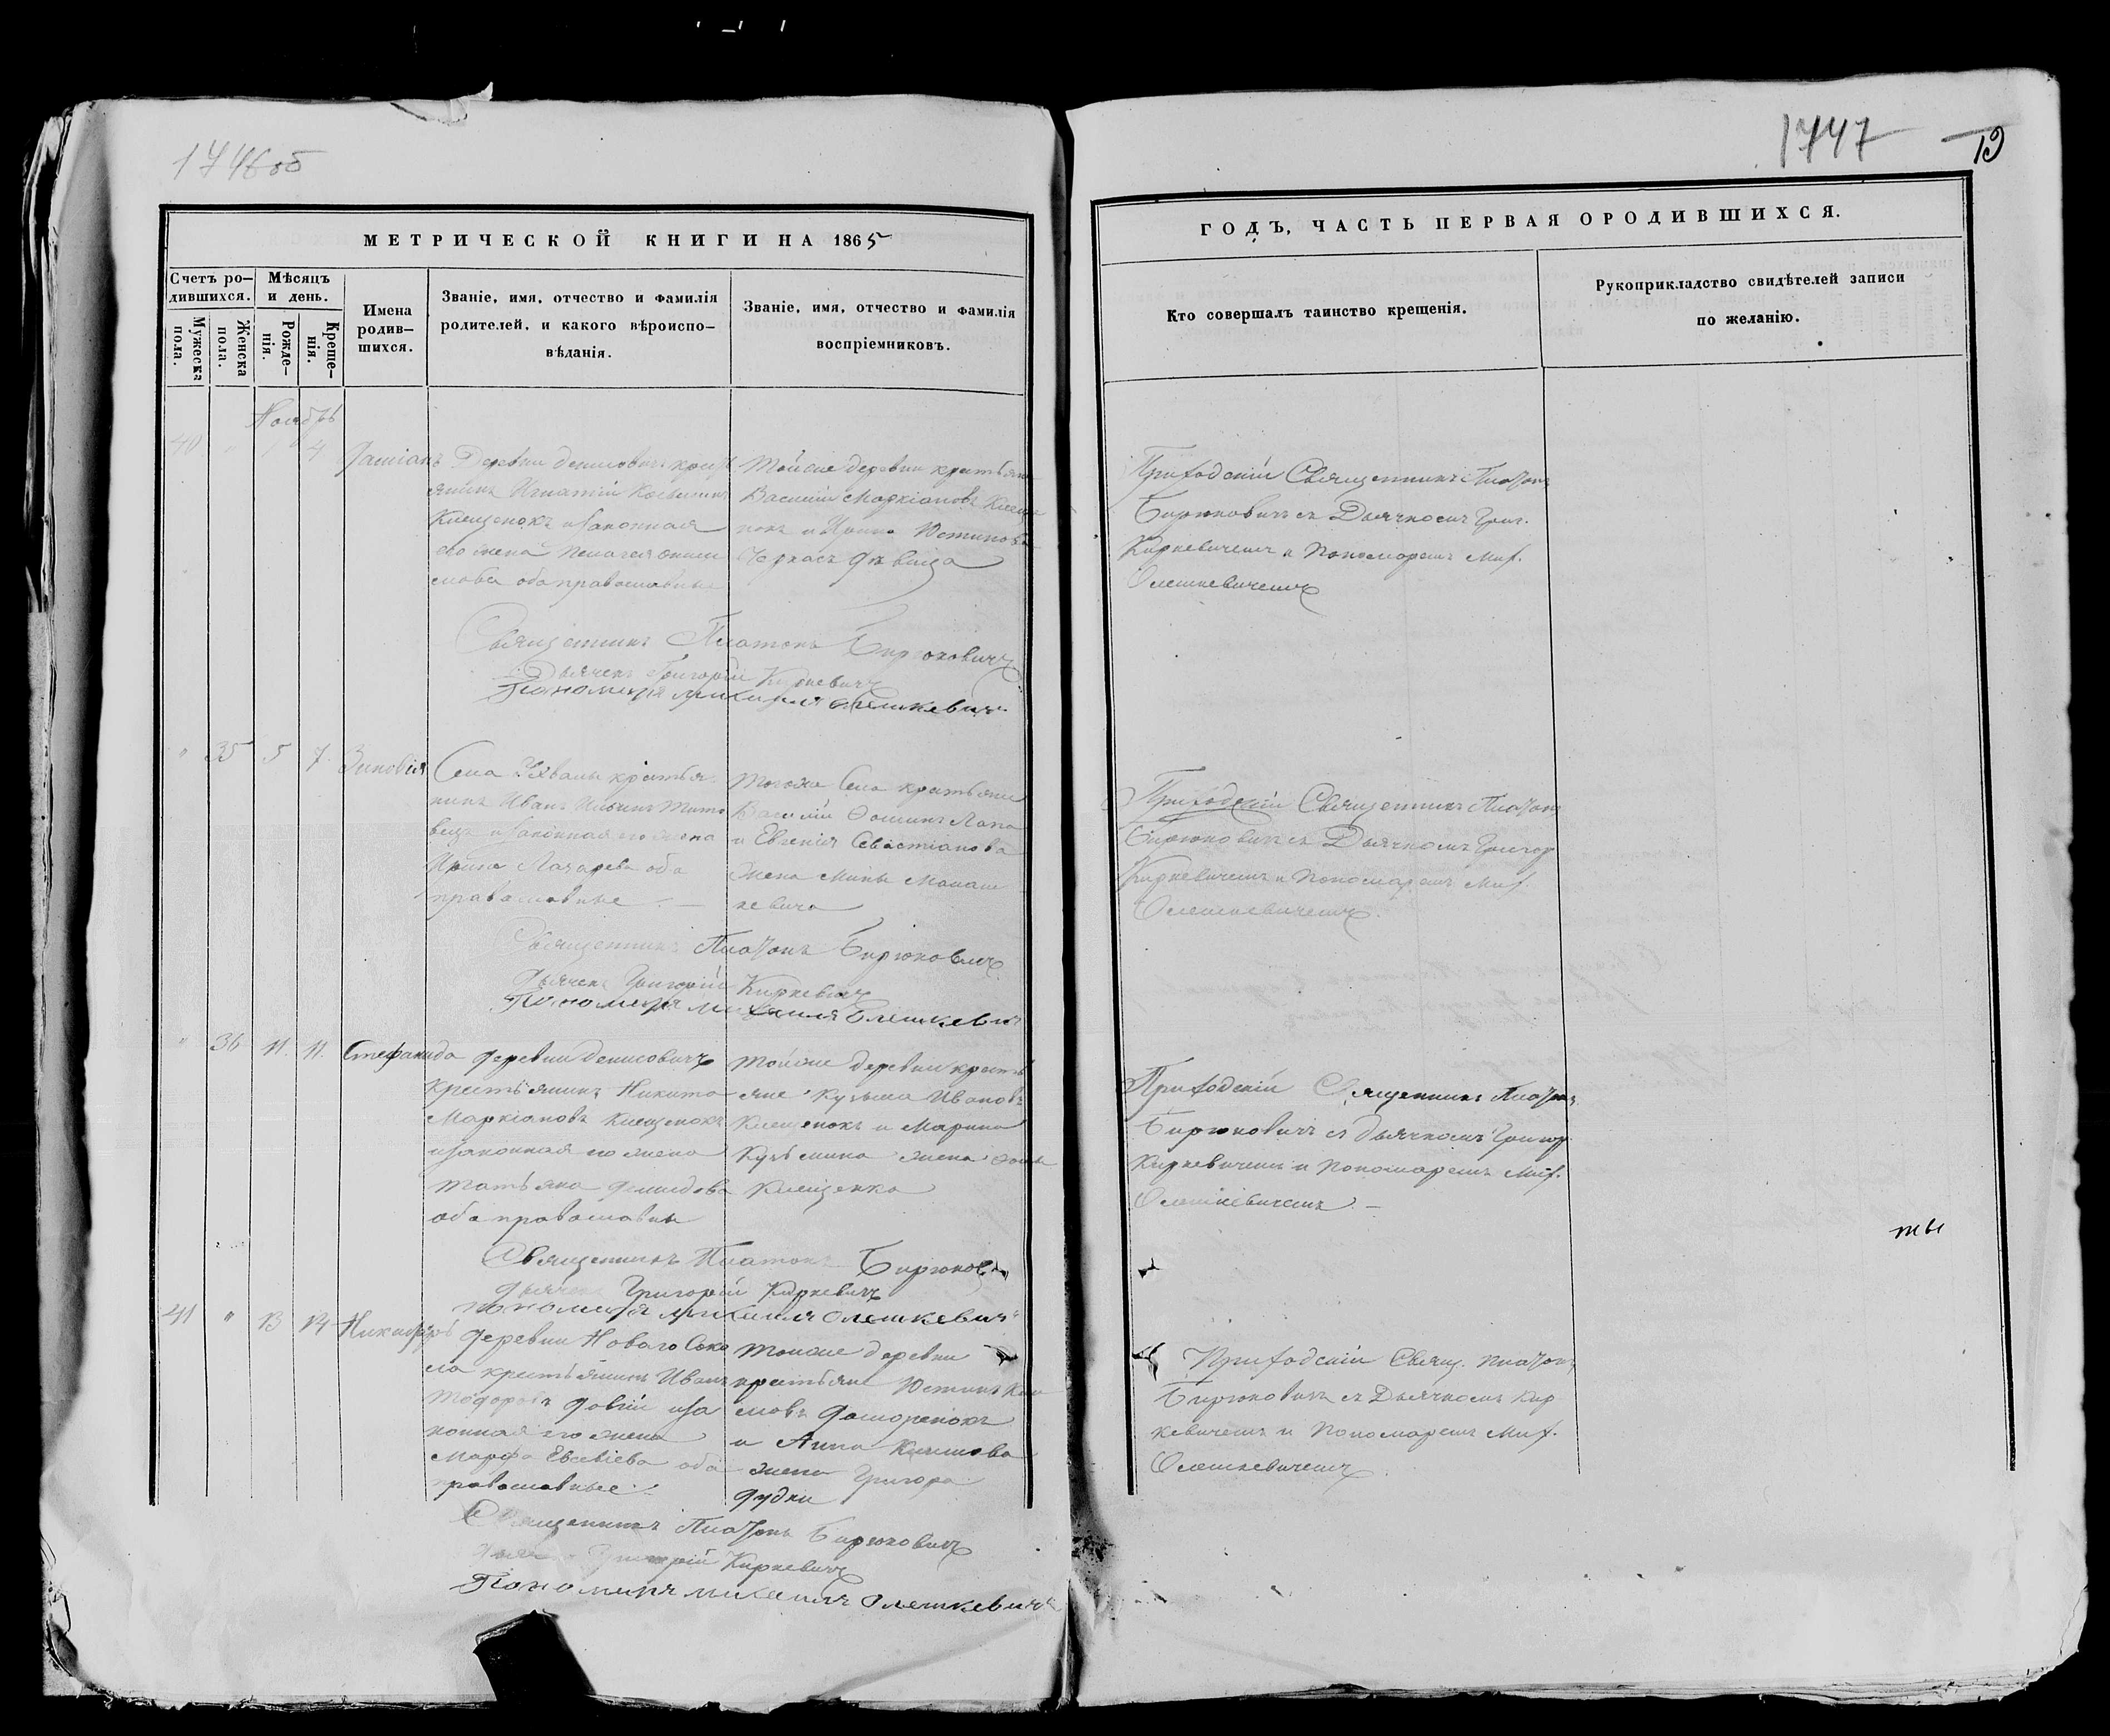 1746об
МЕТРИЧЕСКОЙ КНИГИ НА 1865
Счетъ ро-
дившихся.
Мѣсяцъ
и день.
Мужеска
пола.
Женска
пола.
Рожде-
нія.
Креще-
нія.
Имена
родив-
шихся.
Званіе, имя, отчество и фамилія
родителей, и какого вѣроиспо-
вѣданія.
Званіе, имя, отчество и фамилія
воспріемниковъ.
Ноябрь
40 " 1 4
Деревни Денисовичъ крест
янинъ Игнатій
Клещенокъ и законная
его жена Пелагея
оба православные
Тойже деревни крестьяне
Василій Маркіановъ Клеще
нокъ и Ирина Юстинова
дѣвица
Священникъ Платонъ Бирюковичъ
Дьячекъ Григорій Киркевичъ
Пономарь Михаилъ Олешкевичъ
" 35 5 7 Зиновія
Села Ухвалы крестья
нинъ Иванъ Ильинъ Тито
вецъ и законная его жена
Ирина Лазарева оба
православные
Тогоже Села крестьяне
Василій Фоминъ Лапа
и Евгенія Севастіанова
жена Мины Манаш
кевича
Священникъ Платонъ Бирюковичъ
Дьячекъ Григорій Киркевичъ
Пономарь Михаилъ Олешкевич
" 36 11. 11. Стефанида
деревни Денисовичъ
Крестьянинъ Никита
Маркіановъ Клещенокъ
и законная его жена
Татьяна Демидова
оба православны
Тойже деревни кресть
яне Кузьма Ивановъ
Клещенокъ и Марина
Кузьмина жена Фомы
Клещенка
Священникъ Платонъ Бирюков
Дьячекъ Григорій Киркевичъ
Пономарь Михаилъ Олешкевичъ
41 " 13 14 Никифоръ
деревни Новаго Соко
ла крестьянинъ Иванъ
Тодоровъ Довгій и за
конная его жена
Марфа Евсевіева оба
православные
Тойже деревни
крестьяне Юстинъ Кли
мовъ
и Анна Климова
жена Григора
Дудки
Священникъ Платонъ Бирюковичъ
Дьячекъ Григорій Киркевичъ
Пономарь Михаилъ Олешкевичъ
1747
19
ГОДЪ, ЧАСТЬ ПЕРВАЯ ОРОДИВШИХСЯ.
Кто совершалъ таинство крещенія.
Рукоприкладство свидѣтелей записи
по желанію.
Приходскій Священникъ Платонъ
Бирюковичъ съ Дьячкомъ Григ.
Киркевичемъ и Пономаремъ Мих.
Олешкевичемъ
Приходскій Священникъ Платонъ
Бирюковичъ съ Дьячкомъ Григор
Киркевичемъ и Пономаремъ Мих.
Олешкевичемъ.
Приходскій Священникъ Платонъ
Бирюковичъ съ дьячкомъ Григор
Киркевичемъ и Пономаремъ Мих.
Олешкевичемъ. —
ты
Приходскій Свящ. Платонъ
Бирюковичъ съ Дьячкомъ Кир
кевичемъ и Пономаремъ Мих.
Олешкевичемъ